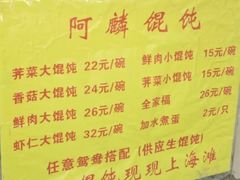 阿麟馄饨
荠菜大馄饨 22元/碗 鲜肉小馄饨 15元/碗
香菇大馄饨 24元/碗 虾肉小馄饨 15元/碗
鲜肉大馄饨 26元/碗 全家福 26元/碗
虾仁大馄饨 32元/碗 加水煮蛋 2元/只
任意鸳鸯搭配（供应生馄饨）
馄饨现现上海滩